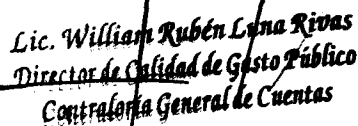 Lic. William Rubén Luna Rivas
Director de Calidad de Gasto Público
Contraloría General de Cuentas